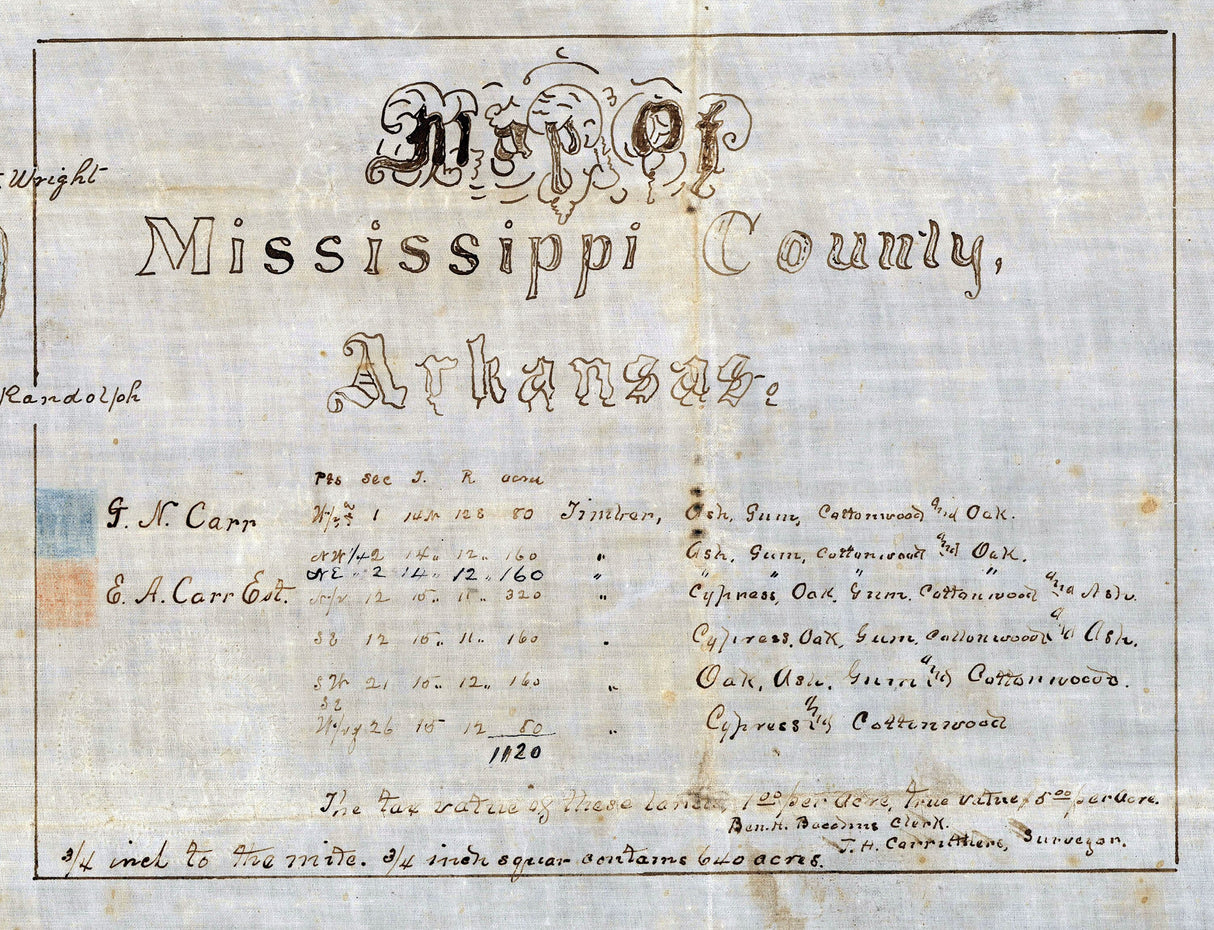 Map of
Wright
Mississippi County,
Arkansas.
Randolph
Pts sec T. R. acres
G. N. Carr W/2 1 14N 12E 80 Timber, Ash, Gum, Cottonwood and Oak.
NW 1/4 2 14 „ 12 „ 160 „ Ash, Gum, Cottonwood and Oak.
NE „ 2 14 „ 12 „ 160 „ „ „ „ „
E. A. Carr Est. 12 15 „ 11 „ 320 „ Cypress, Oak, Gum, Cottonwood and Ash.
SE 12 15 „ 11 „ 160 „ Cypress, Oak, Gum, Cottonwood and Ash.
SW 21 15 „ 12 „ 160 „ Oak, Ash, Gum and Cottonwood.
SE
26 15 12 80 „ Cypress and Cottonwood
1120
The tax value of these lands, 1 00 per acre, true value, 5 00 per acre.
Ben. H. Clerk.
J. H. Carruthers, Surveyor.
3/4 inch to the mile. 3/4 inch squar contains 640 acres.